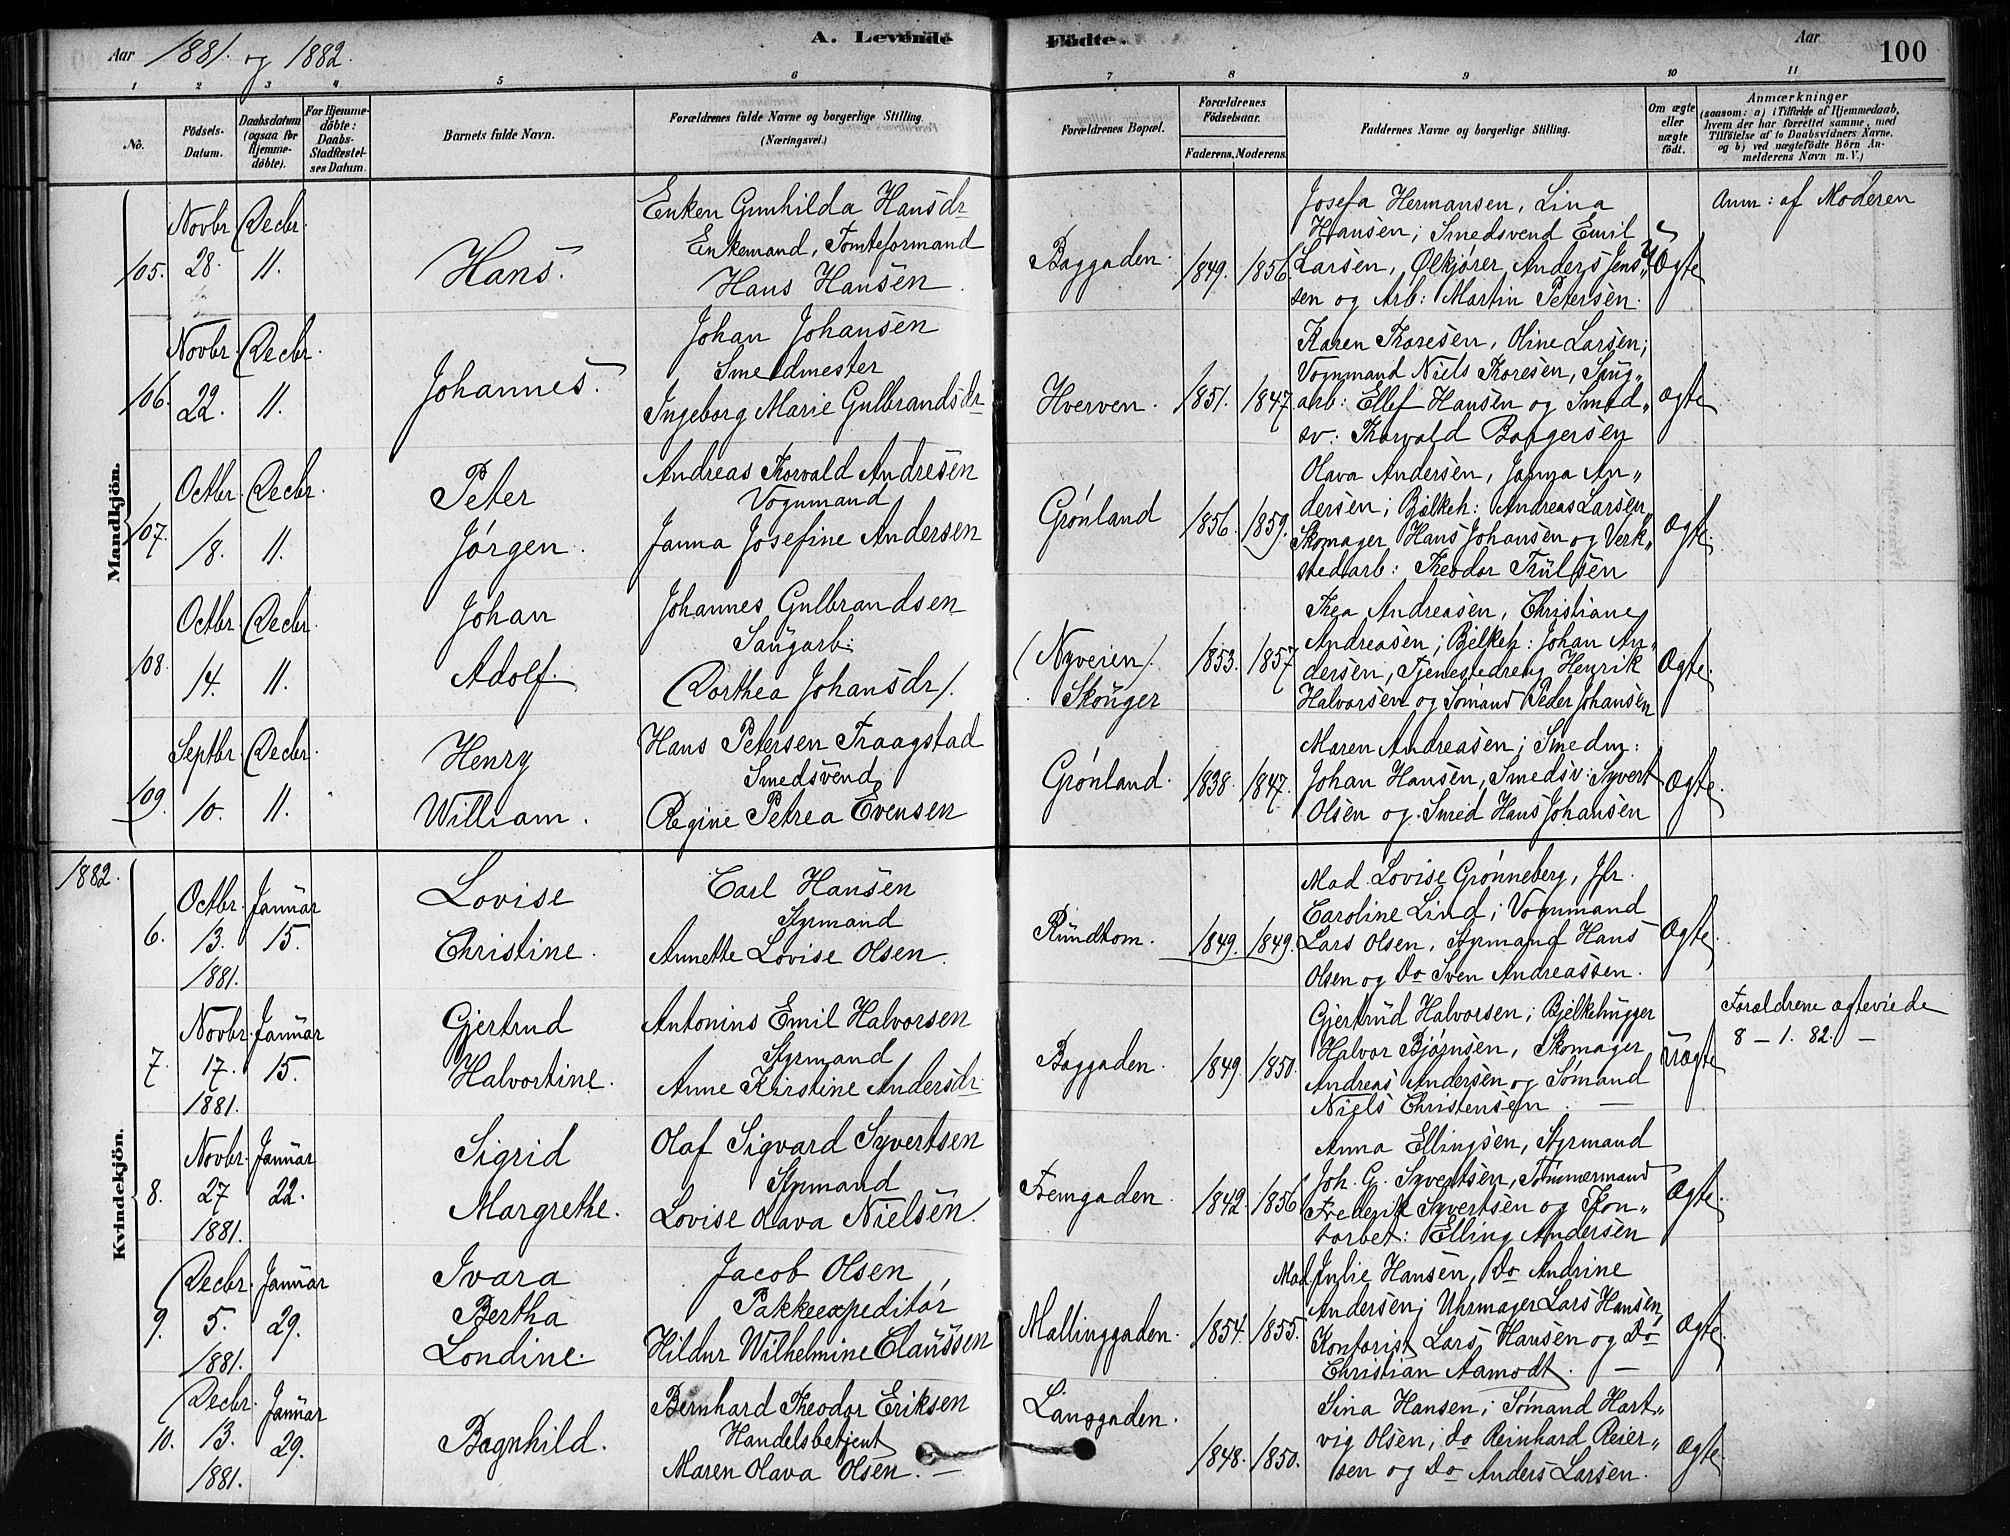 Aar 1881. og 1882.
A. Levende Födte.
Aar
100
1 2 3 4 5 6 7 8 9 10 11
No.
Födsels-Datum.
Daabsdatum (ogsaa for Hjemme-döbte).
For Hjemme-döbte: Daabs-Stadfæstel-ses Datum.
Barnets fulde Navn.
Forældrenes fulde Navne og borgerlige Stilling. (Næringsvei.)
Forældrenes Bopæl.
Forældrenes Födselsaar.
Faderens. Moderens.
Faddernes Navne og borgerlige Stilling.
Om ægte eller uægte födt.
Anmærkninger
(saasom: a) i Tilfælde af Hjemmedaab, hvem der har forrettet samme, med Tilföielse af to Daabsvidners Navne. og b) ved uægtefödte Börn An-melderens Navn m. V.)
Mandkjön.
105. Novbr 28. Decbr. 11.
Hans.
Enken Gunhilda Hansdr
Enkemand, Tomteformand
Hans Hansen
Baggaden. 1849. 1856.
Josefa Hermansen, Lina
Hansen; Smedsvend Emil
Larsen, Ølkjører Anders Jen-
sen og Arb: Martin Petersen.
Uægte
Anm: af Moderen
106. Novbr. 22. Decbr. 11.
Johannes.
Johan Johansen
Smedmester
Ingeborg Marie Gulbrandsdr
Hverven. 1851. 1847.
Karen Thoresen, Oline Larsen;
Vognmand Niels Thoresen, Saug-
arb: Ellef Hansen og Smed-
sv: Thorvald Baggersen
ægte
107. Octbr. 18. Decbr. 11.
Peter
Jörgen.
Andreas Thorvald Andresen
Vognmand
Janna Josefine Andersen
Grönland 1856. 1859.
Olava Andersen, Janna An-
dersen; Bjelkeh: Andreas Larsen,
Skomager Hans Johansen og Verk-
stedarb: Theodor Trulsen
Ægte.
108. Octbr 14. Decbr. 11.
Johan
Adolf.
Johannes Gulbrandsen
Saugarb:
(Dorthea Johansdr).
(Nyveien).
Skouger
1853. 1857
Thea Andreasen, Christiane
Andreasen; Bjelkeh: Johan An-
dersen, Tjenestedreng Henrik
Halvorsen og Sömand Peder Johansen
Ægte.
109. Septbr. 10. Decbr. 11.
Henry
William.
Hans Petersen Fraagstad
Smedsvend
Regine Petrea Evensen
Grönland. 1838. 1847.
Maren Andreasen; Smedm:
Johan Hansen, Smedsv: Syvert
Olsen og Smed Hans Johansen
Ægte.
1882.
Kvindekjön.
6. Octbr. 13. 1881. Januar 15.
Lovise
Christine.
Carl Hansen
Styrmand
Annette Lovise Olsen.
Rundtom. 1849. 1849.
Mad. Lovise Grönneberg, Jfr.
Caroline Lind; Vognmand
Lars Olsen, Styrmand Hans
Olsen og Do Sven Andreassen.
Ægte.
7. Novbr. 17. 1881. Januar 15.
Gjertrud
Halvortine.
Antonius Emil Halvorsen
Styrmand
Anne Kirstine Andersdr.
Baggaden. 1849 1850.
Gjertrud Halvorsen; Bjelkehugger
Halvor Björnsen, Skomager
Andreas Andersen og Sömand
Niels Christensen.
Uægte
Forældrene ægteviede
8 - 1. 82. -
8. Novbr. 27 1881. Januar 22.
Sigrid
Margrethe.
Olaf Sigvard Syvertsen
Styrmand
Lovise Olava Nielsen.
Fremgaden. 1842. 1856
Anna Ellingsen, Styrmand
Joh. G. Syvertsen, Tömmermand
Frederik Syvertsen og Ton-
torbet: Elling Andersen
Ægte.
9. Decbr. 5. 1881. Januar 29.
Ivara
Bertha
Londine.
Jacob Olsen
Pakkeexpeditör
Hildur Wilhelmine Claussen
Mallinggaden. 1854. 1855.
Mad Julie Hansen, Do Andrine
Andersen; Uhrmager Lars Hansen,
Kontorist Lars Hansen og Do
Christian Aamodt.
Ægte.
10. Decbr. 13. 1881. Januar 29.
Ragnhild.
Bernhard Theodor Eriksen
Handelsbetjent
Maren Olava Olsen.
Langgaden. 1848. 1850.
Lina Hansen; Sömand Hart-
vig Olsen, do Reinhard Reier-
sen og Do Anders Larsen.
Ægte.